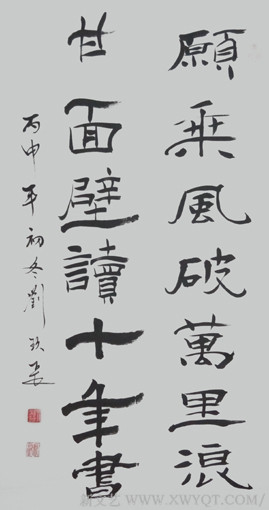 願乘風破萬里浪
甘面壁讀十年書
丙申年初冬劉
WWW.XWYQT.COM/